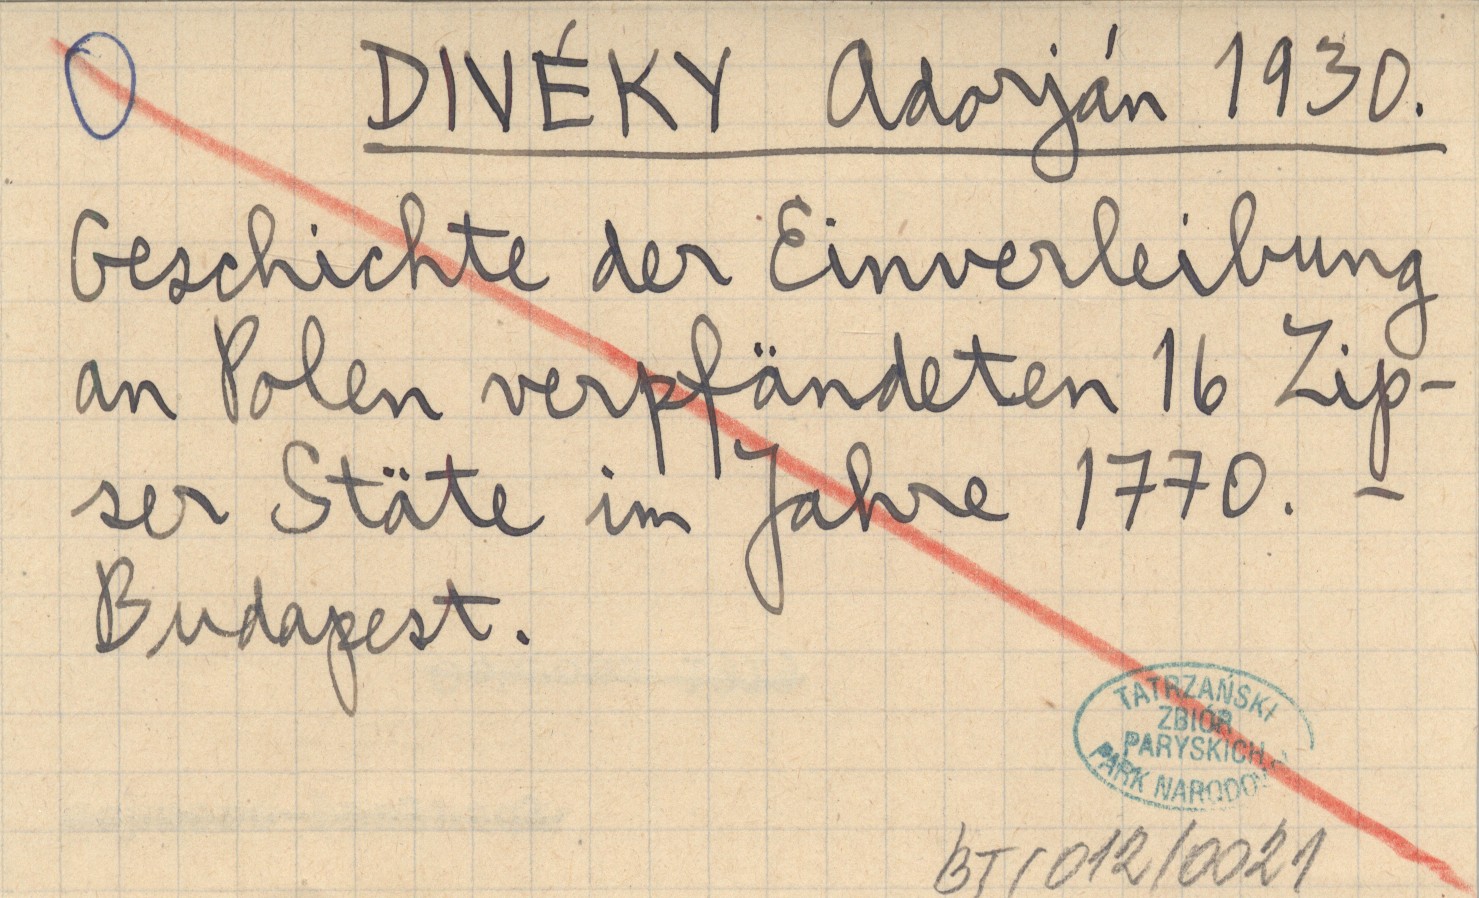 DIVÉKY Adorján 1930.
Geschichte der Einverleibung
an Polen verpfändeten 16 Zip-
ser Stäte im Jahre 1770. –
Budapest.
TATRZAŃSKI
ZBIÓR
PARYSKICH
PARK NARODOW
BT/012/0021